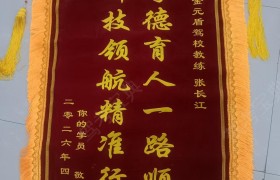 金元盾驾校教练 张长江
德育人一路顺
技领航精准行
你的学员 敬
二零二六年四